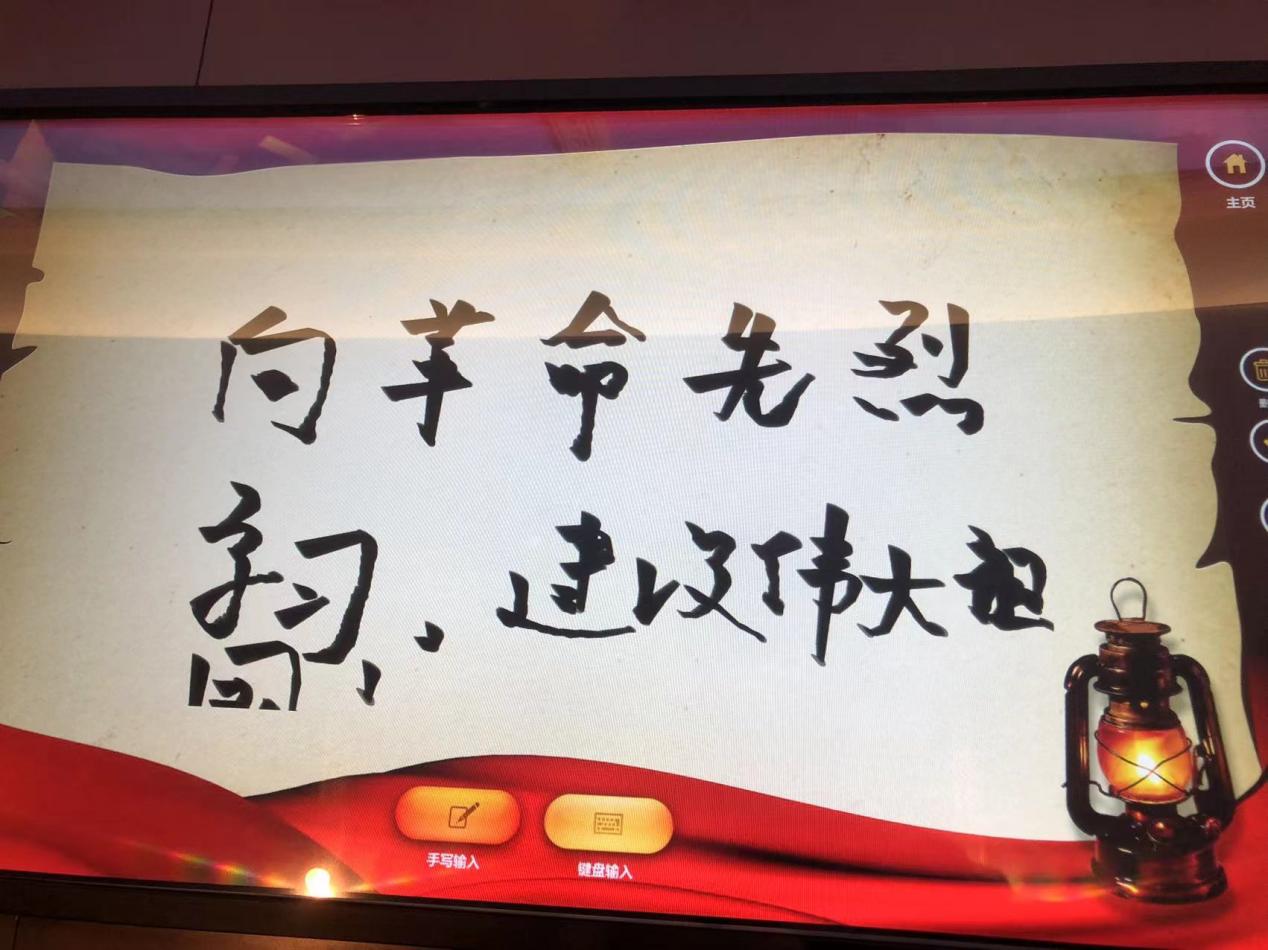 主页
向革命先烈
学习,建设伟大祖
国!
手写输入
键盘输入